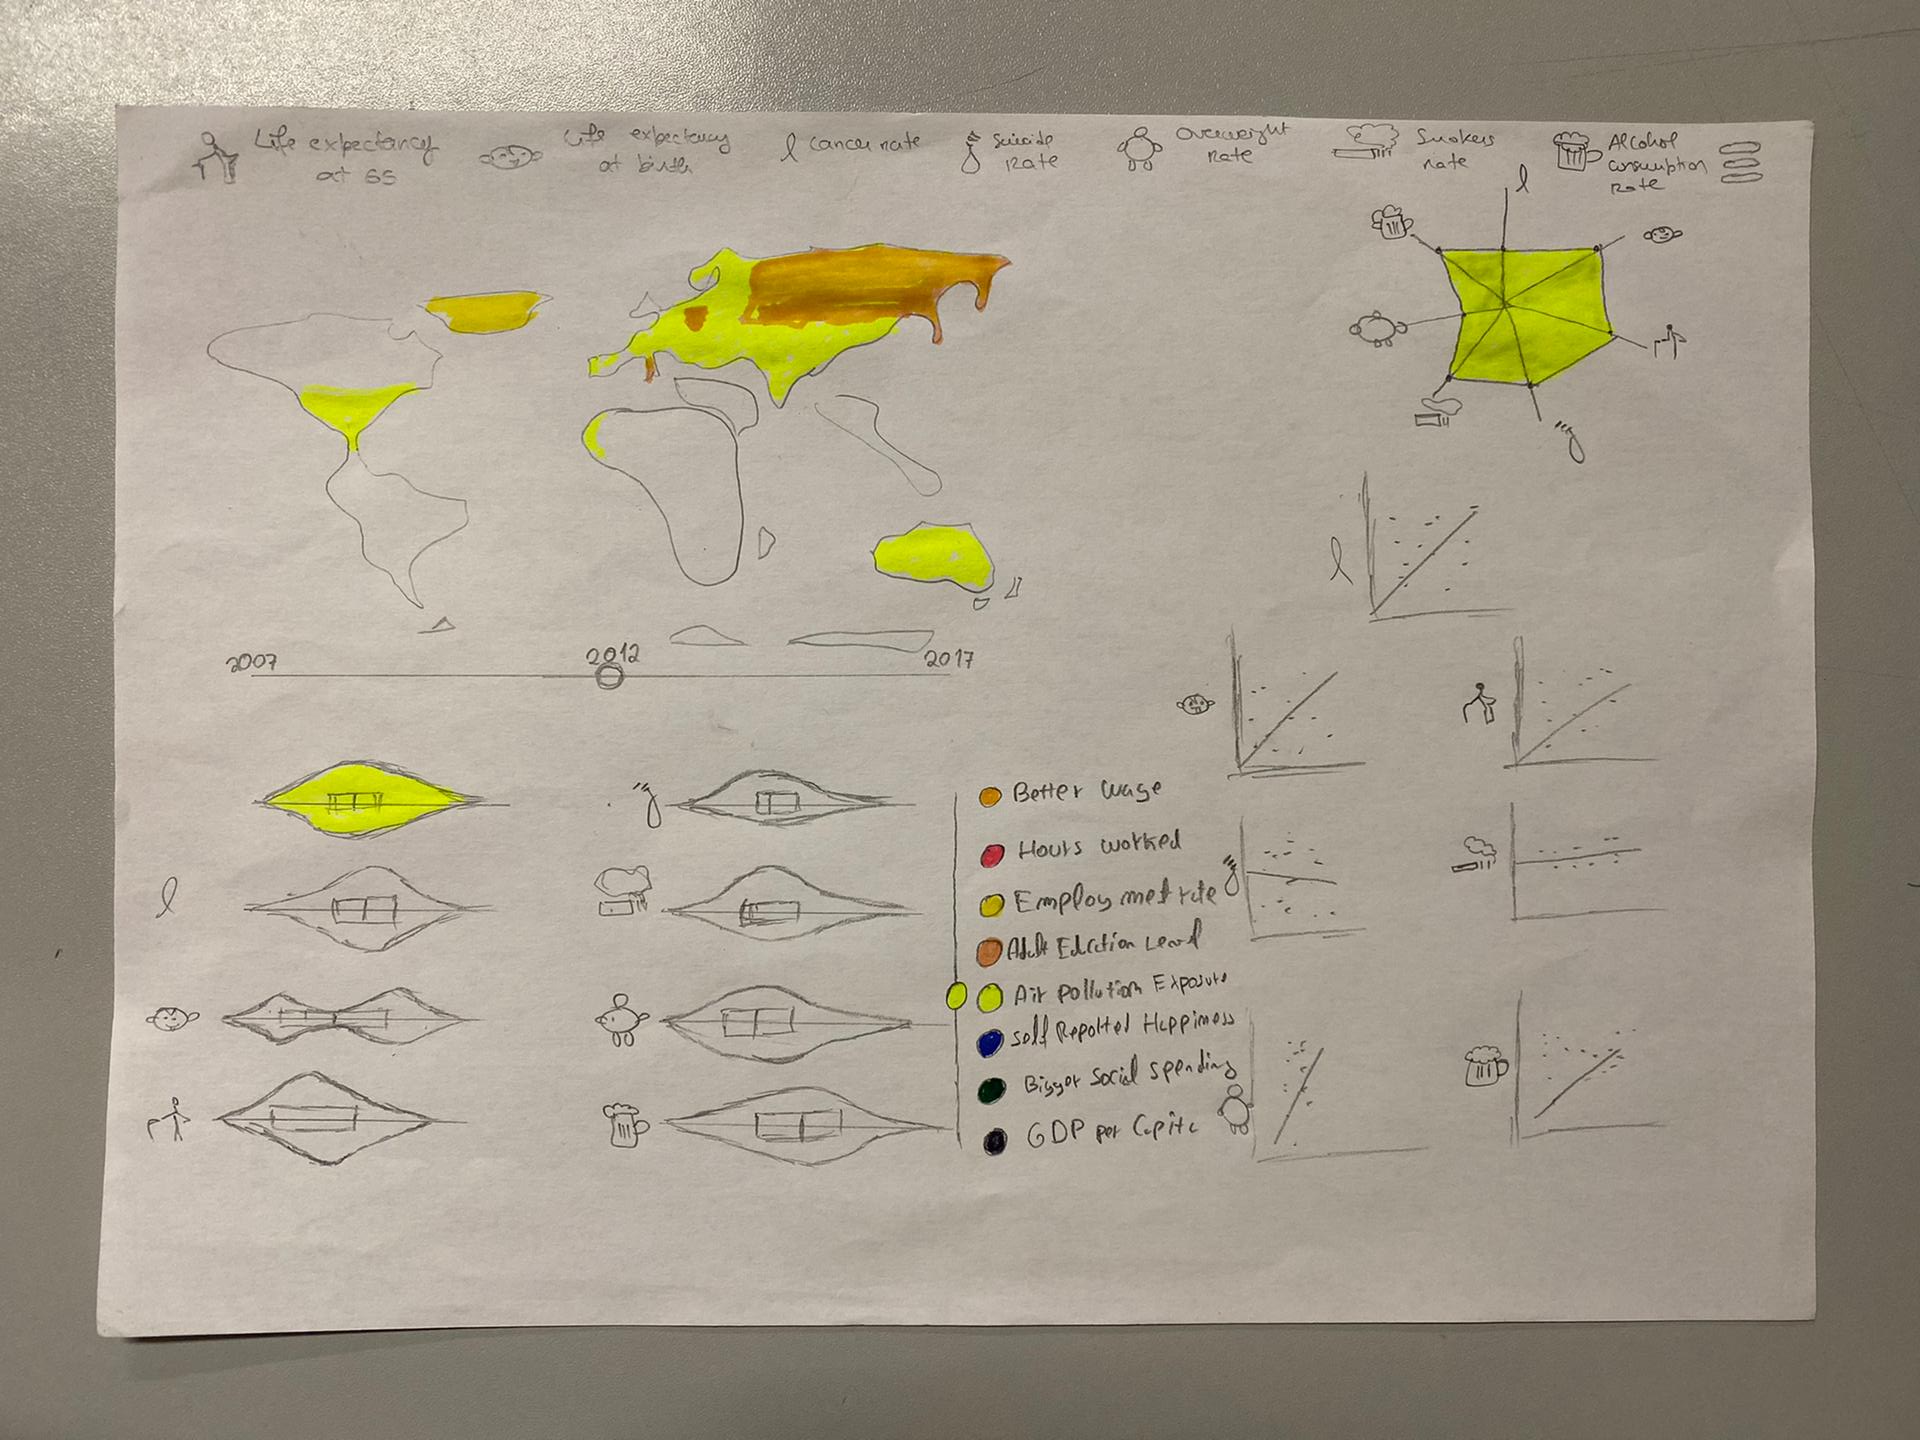 Life expectancy
at 65
Life expectancy
at birth
cancer rate
Suicide
Rate
Overweight
Rate
Smokers
rate
Alcohol
consumption
Rate
2007
2012
2017
Better wage
Hours worked
Employmest rate
Adult Edection Level
Air pollution Exposure
Self Reported Happiness
Bigger Social Spending
GDP per Capita